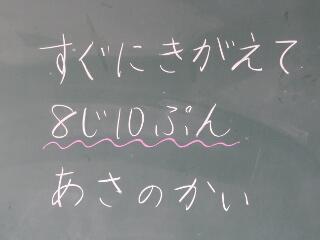 すぐにきがえて
8じ10ぷん
あさのかい